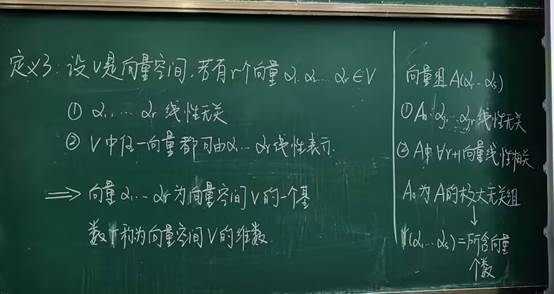 定义3: 设V是向量空间,若有r个向量 α₁,α₂,…αᵣ∈V
① α₁,…αᵣ 线性无关
② V中任一向量都可由α₁…αᵣ线性表示.
⟹ 向量α₁…αᵣ为向量空间V的一个基
数r称为向量空间V的维数.
向量组A(α₁…αₛ)
① A₀:α₁…αᵣ线性无关
② A中∀r+1向量线性相关
A₀为A的极大无关组
↓
r(α₁…αₛ)=所含向量
个数